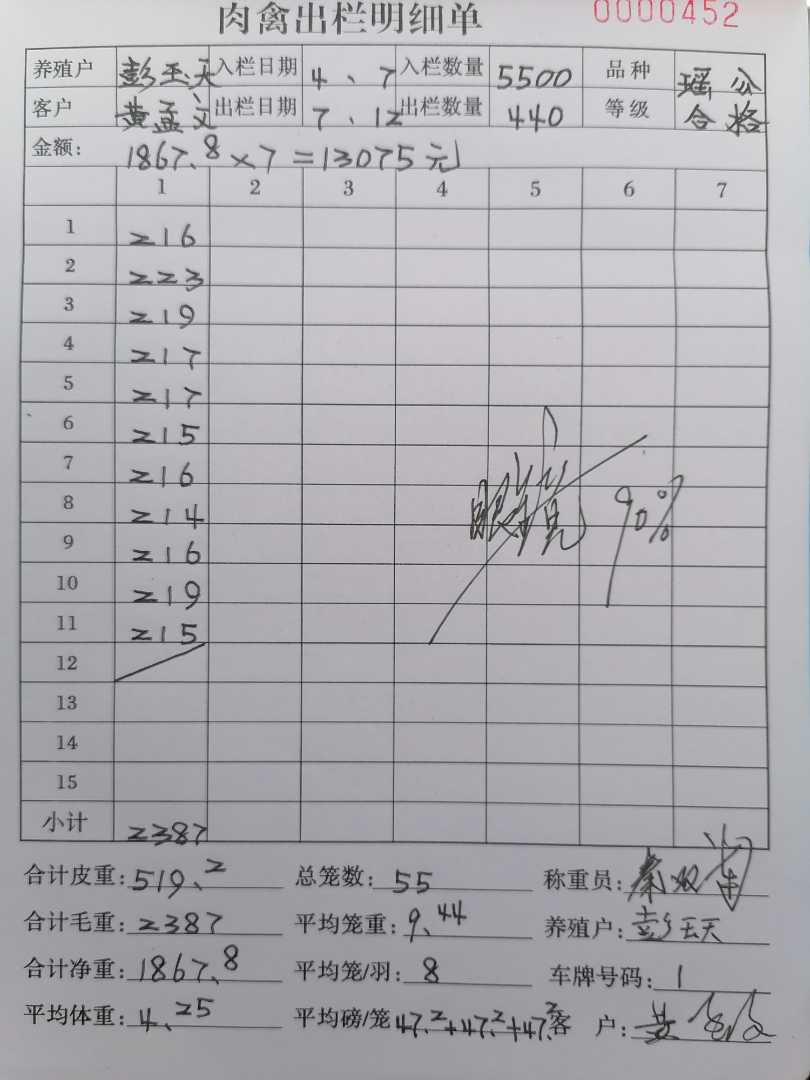 肉禽出栏明细单 0000452
养殖户 彭玉天 入栏日期 4、7 入栏数量 5500 品种 瑶公
客户 黄孟文 出栏日期 7、12 出栏数量 440 等级 合格
金额: 1867.8×7=13075元
1 2 3 4 5 6 7
1 216
2 223
3 219
4 217
5 217
6 215
7 216
8 214 90%
9 216
10 219
11 215
12
13
14
15
小计 2387
合计皮重: 519.2 总笼数: 55 称重员: 秦双
合计毛重: 2387 平均笼重: 9.44 养殖户: 彭玉天
合计净重: 1867.8 平均笼/羽: 8 车牌号码: 1
平均体重: 4.25 平均磅/笼 47.2+47.2+47.2 客 户: 黄